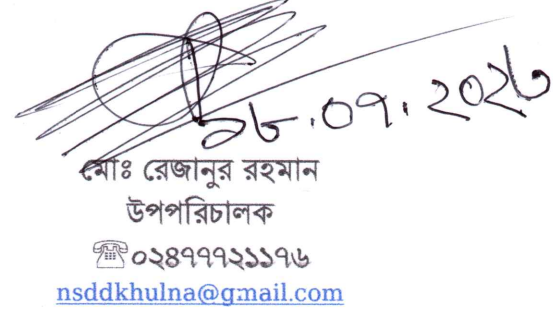 ১৮.০৭.২০২৬
মোঃ রেজানুর রহমান
উপপরিচালক
☎০২৪৭৭৭২১১৭৬
nsddkhulna@gmail.com